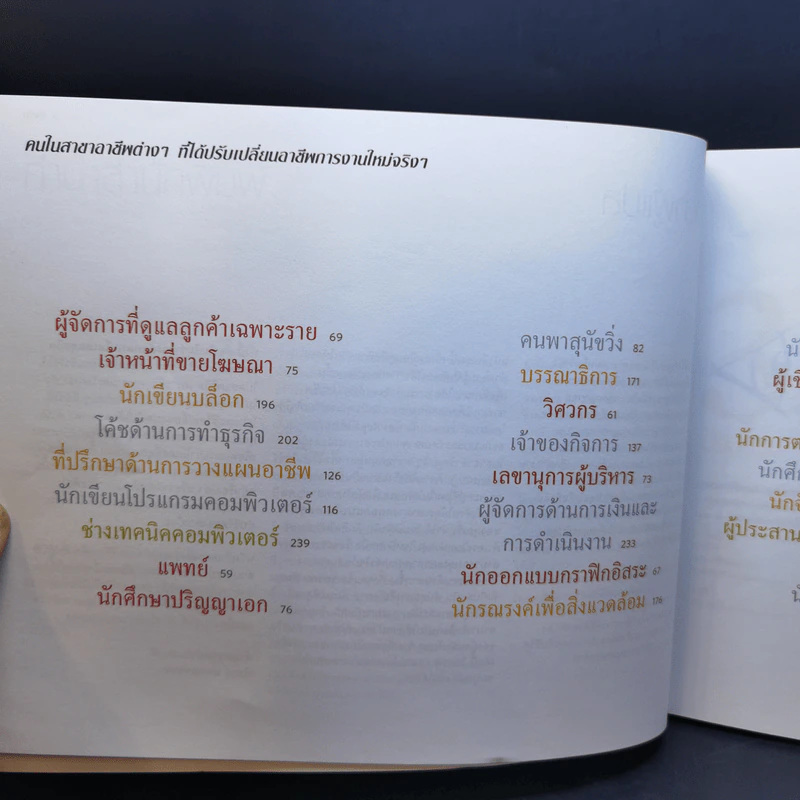 คนในสาขาอาชีพต่างๆ ที่ได้ปรับเปลี่ยนอาชีพการงานใหม่จริงๆ
ผู้จัดการที่ดูแลลูกค้าเฉพาะราย 69
เจ้าหน้าที่ขายโฆษณา 75
นักเขียนบล็อก 196
โค้ชด้านการทำธุรกิจ 202
ที่ปรึกษาด้านการวางแผนอาชีพ 126
นักเขียนโปรแกรมคอมพิวเตอร์ 116
ช่างเทคนิคคอมพิวเตอร์ 239
แพทย์ 59
นักศึกษาปริญญาเอก 76
คนพาสุนัขวิ่ง 82
บรรณาธิการ 171
วิศวกร 61
เจ้าของกิจการ 137
เลขานุการผู้บริหาร 73
ผู้จัดการด้านการเงินและ
การดำเนินงาน 233
นักออกแบบกราฟิกอิสระ 67
นักรณรงค์เพื่อสิ่งแวดล้อม 176